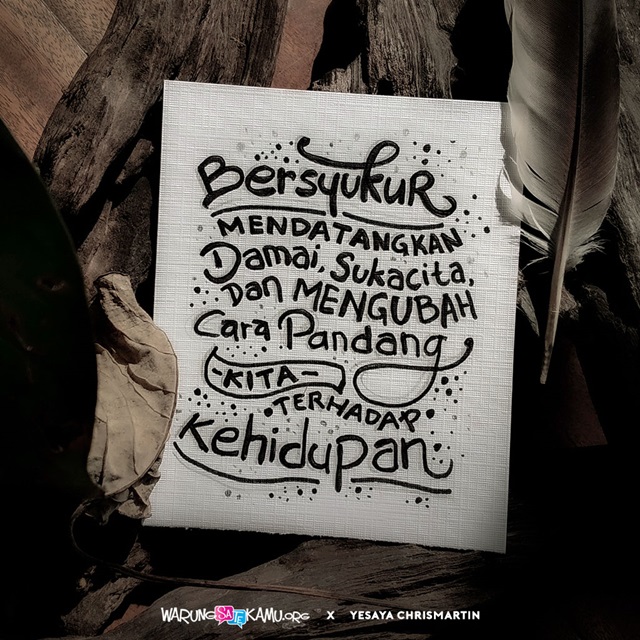 BERSYUKUR
MENDATANGKAN
Damai, Sukacita,
Dan MENGUBAH
Cara Pandang
-KITA-
TERHADAP
Kehidupan
WARUNGSATEKAMU.ORG X YESAYA CHRISMARTIN